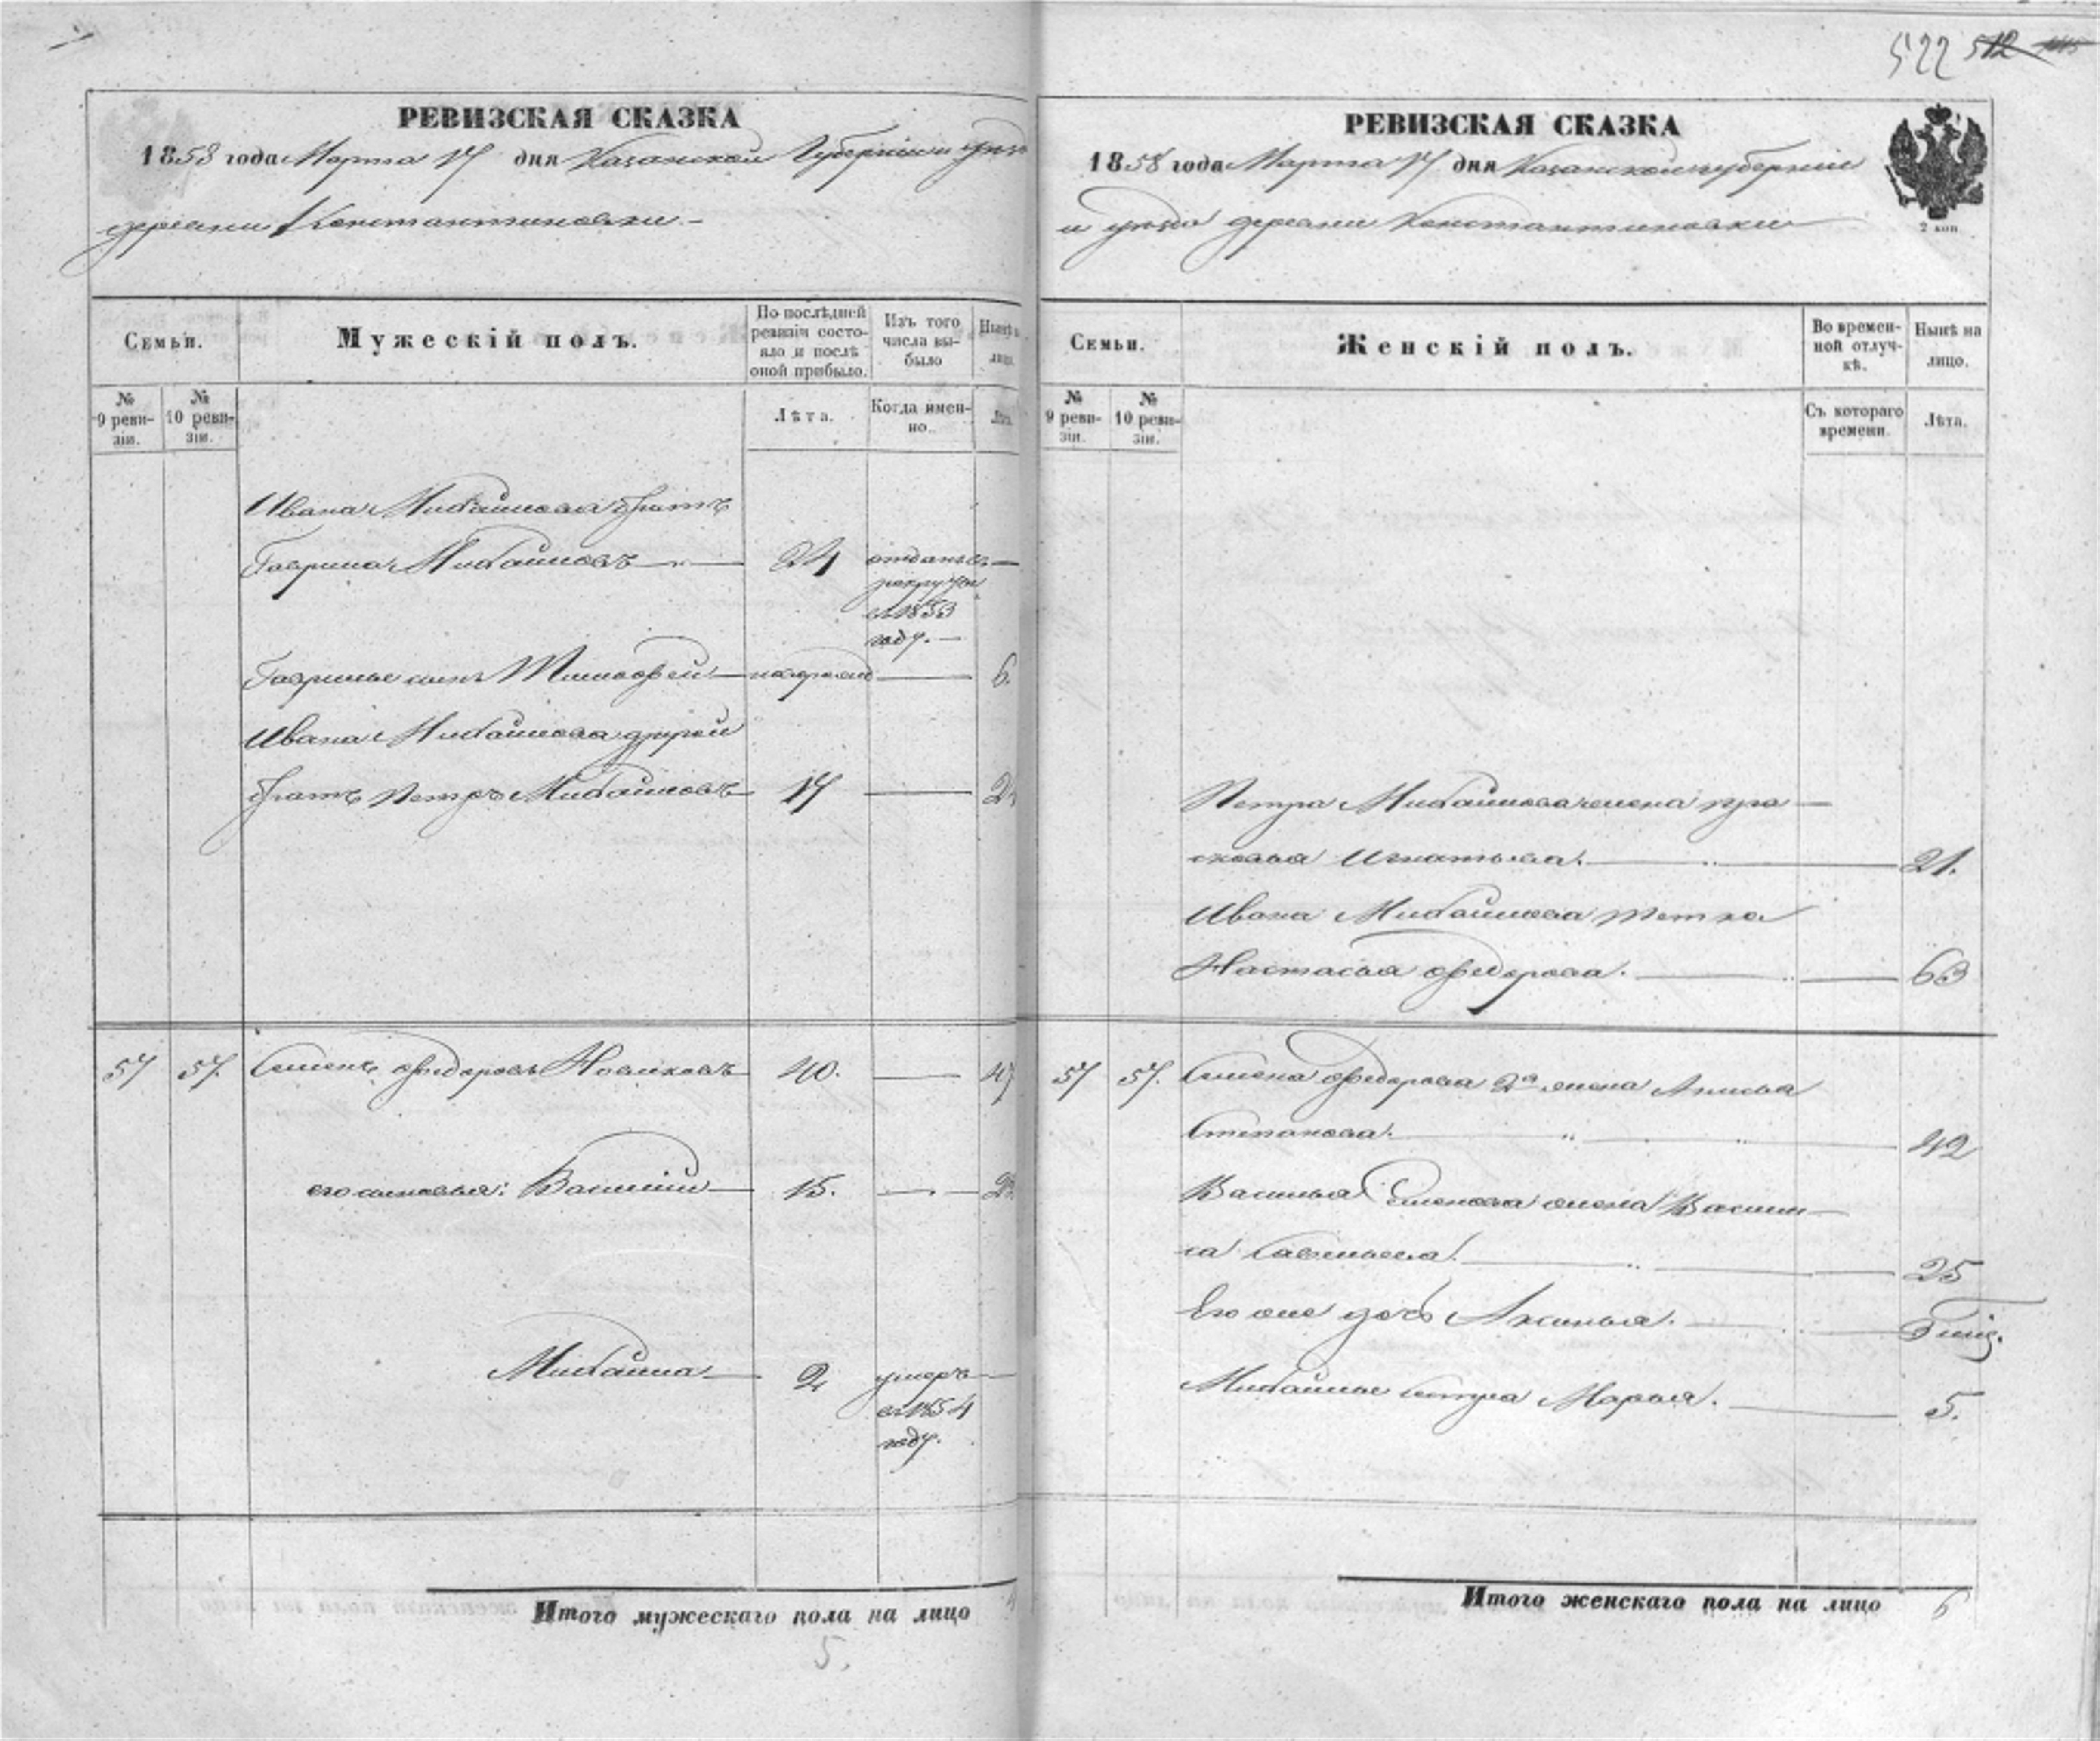 522 512
РЕВИЗСКАЯ СКАЗКА
1858 года Марта 17 дня Казанской Губернiи и уѣзда
деревни Константиновки
Семьи.
Мужескiй полъ.
По послѣдней ревизiи состояло и послѣ оной прибыло.
Изъ того числа выбыло
Нынѣ на лицо.
№ 9 ревизiи.
№ 10 ревизiи.
Лѣта.
Когда именно.
Лѣта.
Ивана Михайлова братъ
Гаврила Михайловъ 24 отданъ въ
рекруты
въ 1853
году.
Гаврилы сынъ Тимофей новорож 6.
Ивана Михайлова другой
братъ Петръ Михайловъ 17
57 57. Семенъ Федоровъ Новиковъ 40. 47
его сыновья: Василiй 15.
Михайла 2 умеръ
въ 1854
году.
Итого мужескаго пола на лицо
5.
РЕВИЗСКАЯ СКАЗКА
1858 года Марта 17 дня Казанской губернiи
и уѣзда деревни Константиновки
2 коп
Семьи.
Женскiй полъ.
Во временной отлучкѣ.
Нынѣ на лицо.
№ 9 ревизiи.
№ 10 ревизiи.
Съ котораго времени.
Лѣта.
Петра Михайлова жена Пра
сковья Игнатьева. 21.
Ивана Михайлова тетка
Настасья Федорова. 63
57 57. Семена Федорова 2я жена Анисья
Степанова. 42
Василья Семенова жена Васили
са Савельева. 25
Его же дочь Аксинья. 5 мѣс.
Михайлы сестра Марья. 5.
Итого женскаго пола на лицо 6